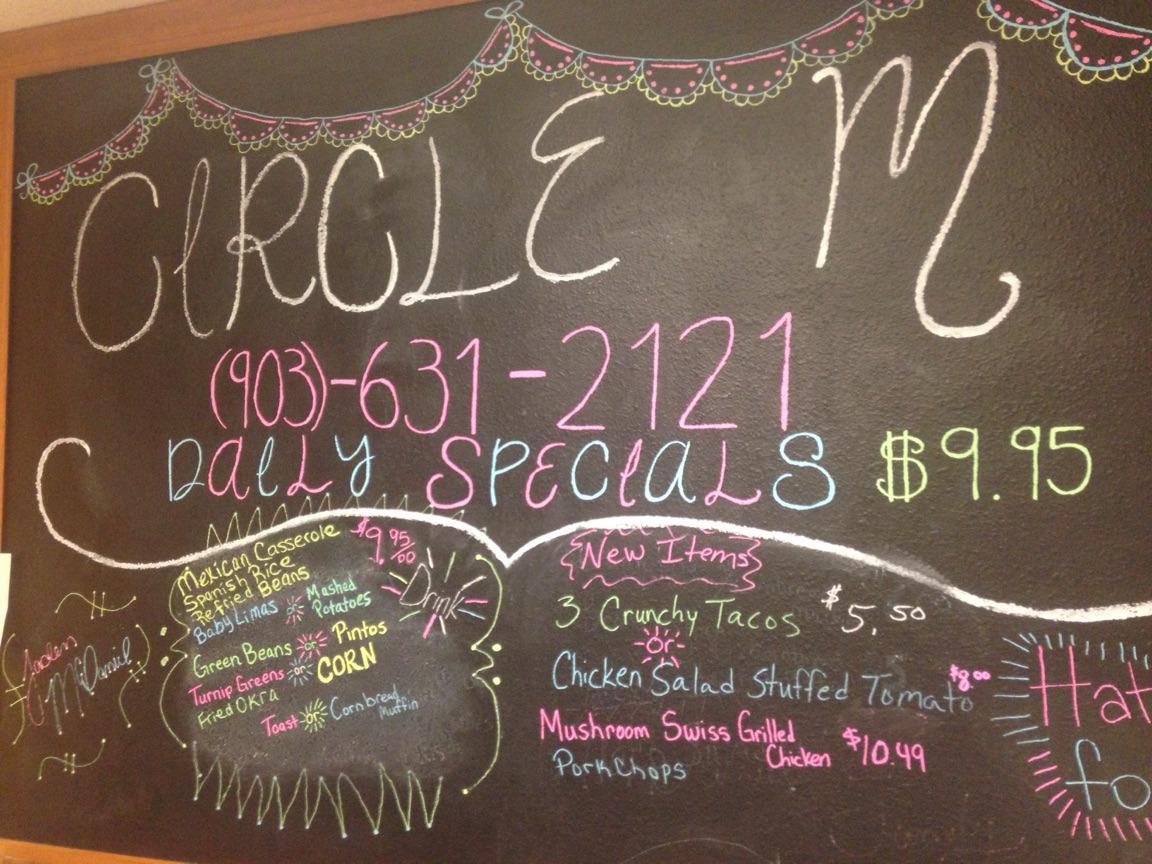 CIRCLE M
(903)-631-2121
DAILY SPECIALS $9.95
Mexican Casserole $9.95/00
Spanish Rice
Refried Beans
Baby Limas or Mashed Potatoes
Green Beans or Pintos
Turnip Greens or CORN
Fried OKra
Toast or Cornbread Muffin
Drink
McDaniel
New Items
3 Crunchy Tacos $5.50
or
Chicken Salad Stuffed Tomato $8.00
Mushroom Swiss Grilled
Chicken $10.49
PorkChops
Hat
fo